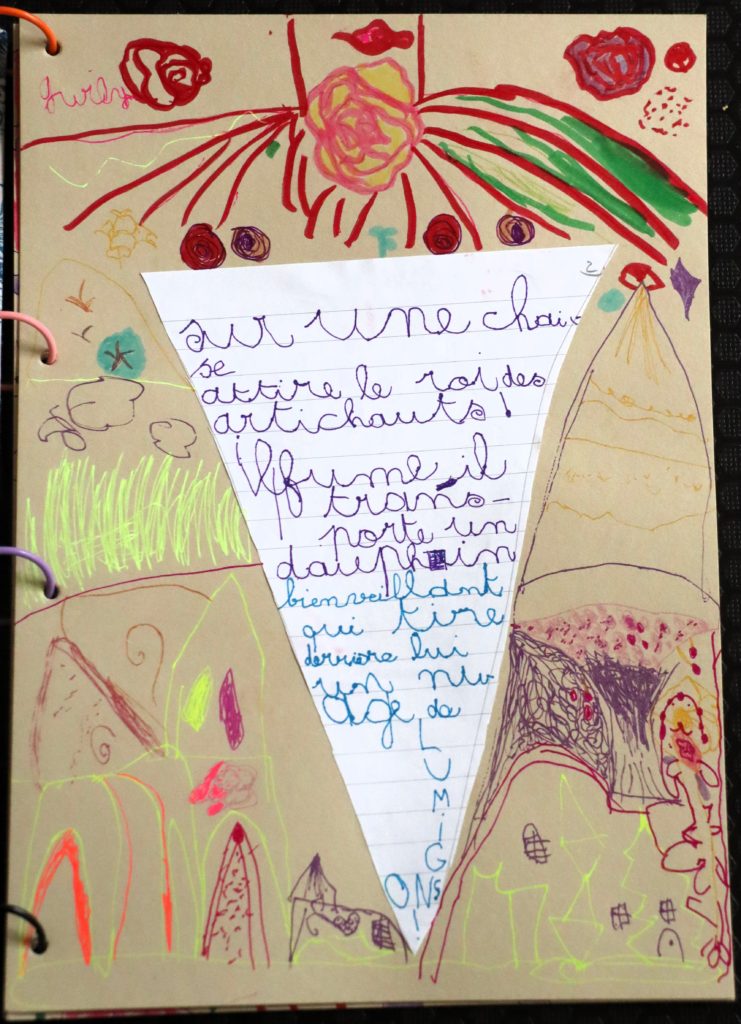 sur une chai
se
attire le roi des
artichauts!
Il fume, il
trans-
porte un
dauphin
bienveillant
qui tire
derriere lui
un nu
age de
L
U
M
I
G
ONS!